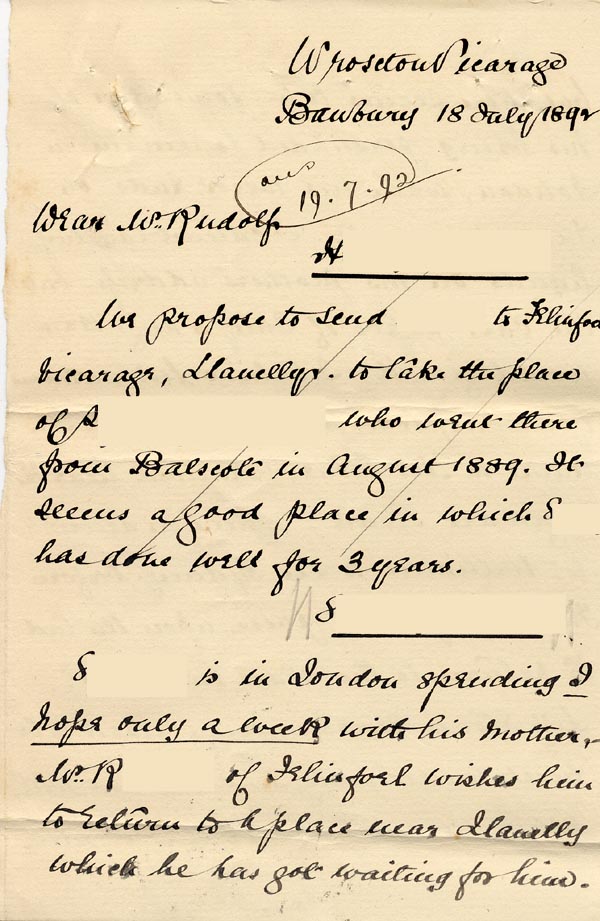 Wroxton Vicarage
Banbury 18 July 1892
ans
19.7.92
Dear Mr. Rudolf
H
We propose to send to Felinfoel
Vicarage, Llanelly. to take the place
of S who went there
from Balscote in August 1889. It
seems a good place in which S
has done well for 3 years.
S
S is in London spending I
hope only a week with his mother,
Mr. R of Felinfoel wishes him
to return to a place near Llanelly
which he has got waiting for him.